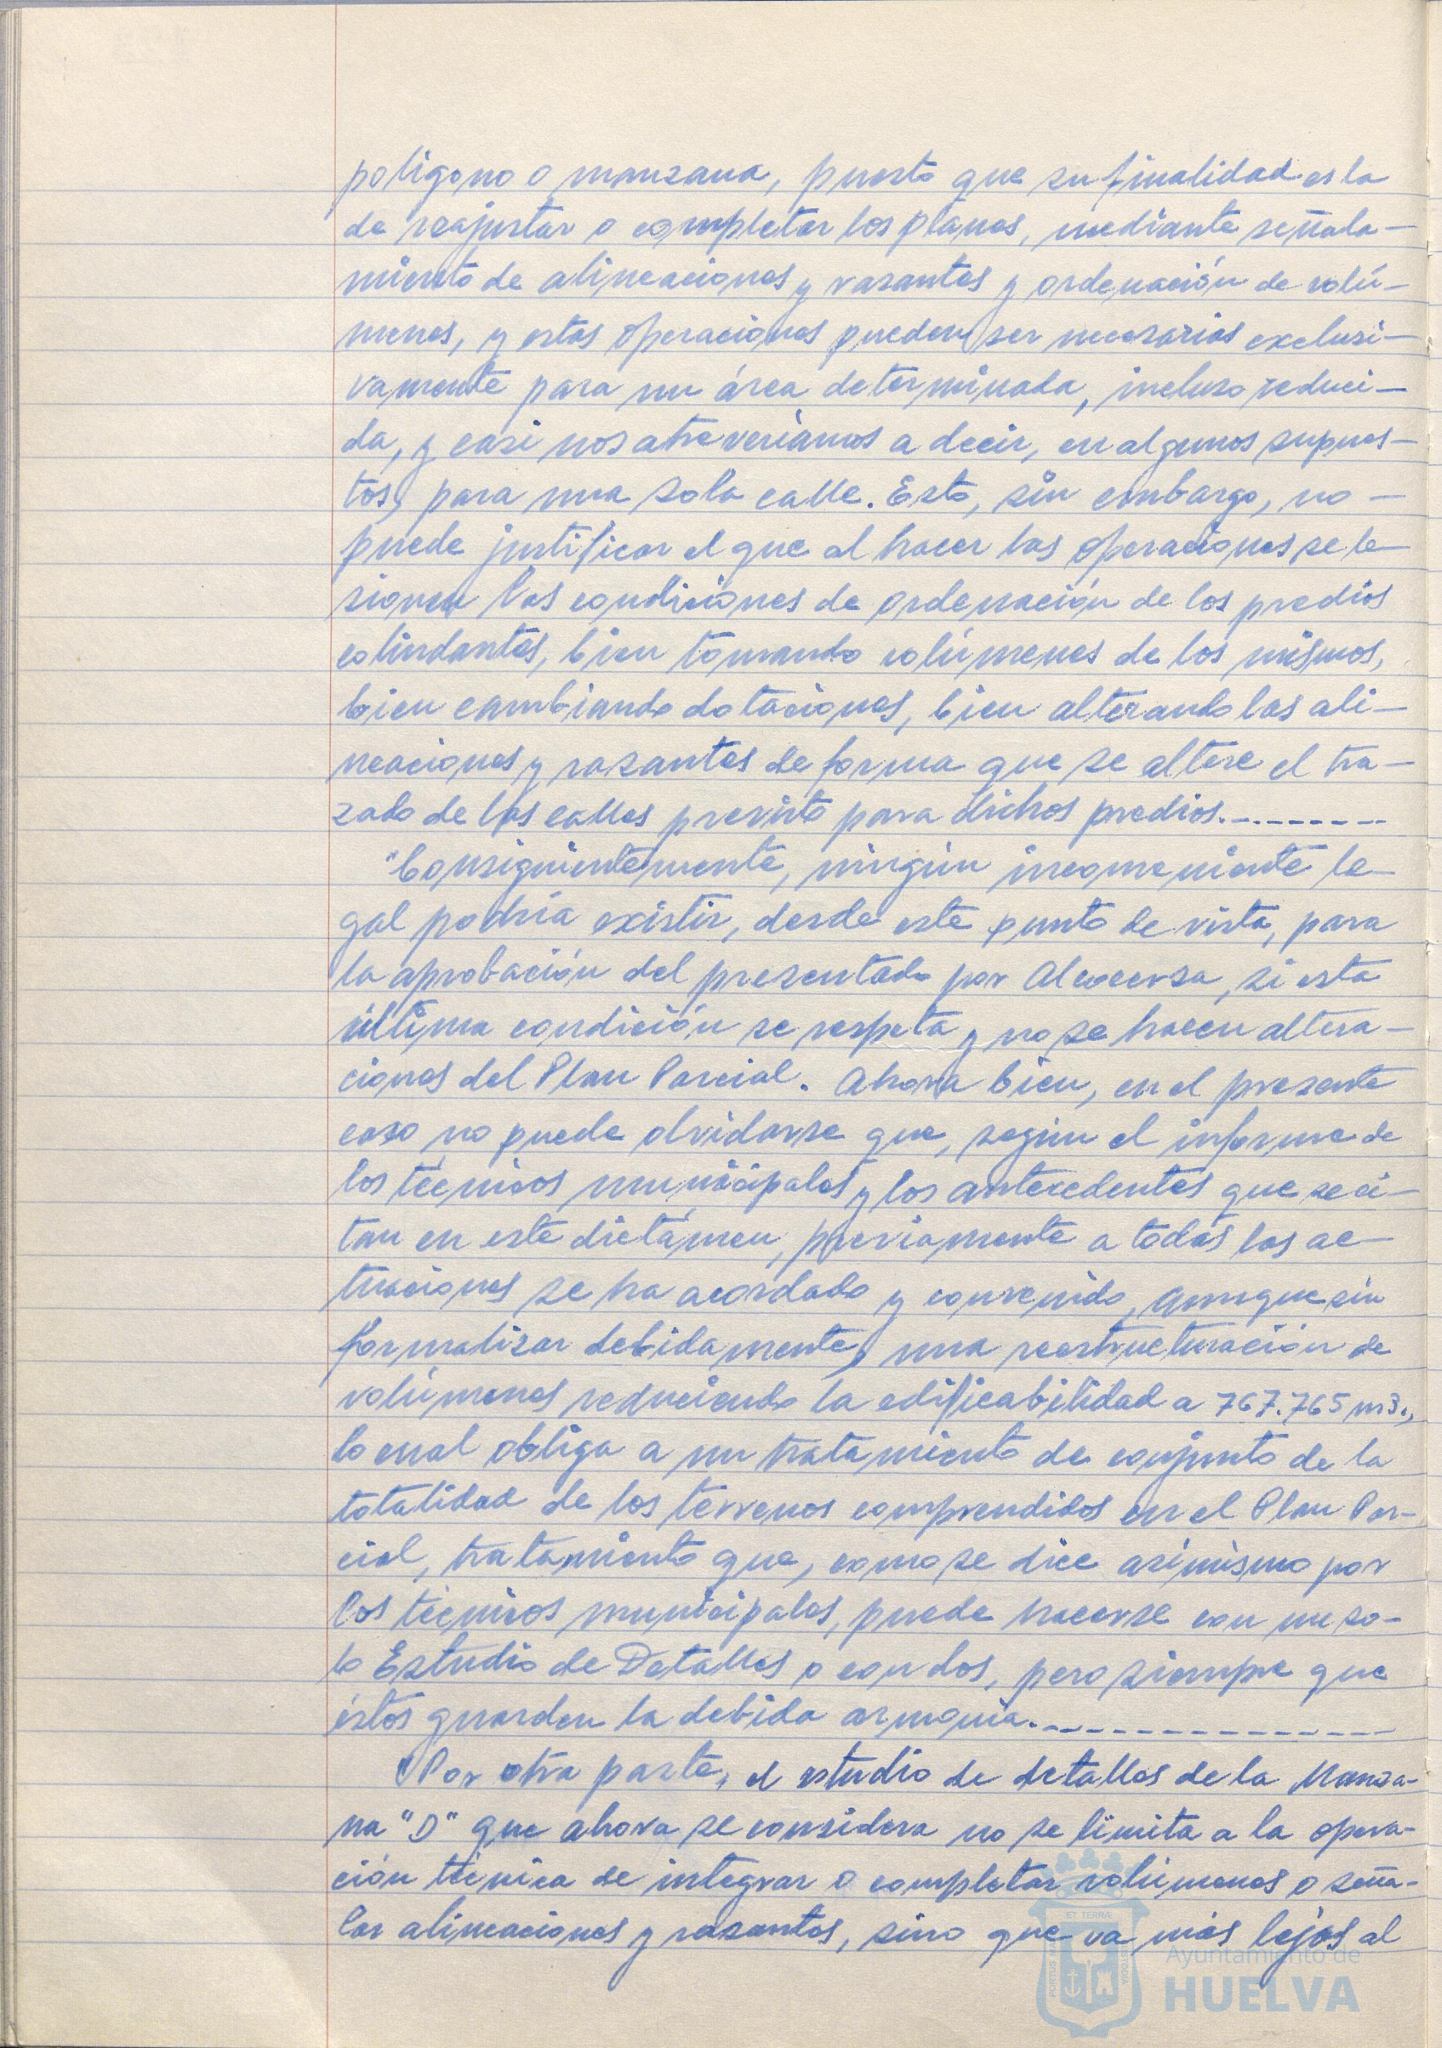 polígono o manzana, puesto que su finalidad es la
de reajustar o completar los planes, mediante señala-
miento de alineaciones y rasantes y ordenación de volú-
menes, y estas operaciones pueden ser necesarias exclusi-
vamente para un área determinada, incluso reduci-
da, y casi nos atreveríamos a decir, en algunos supues-
tos, para una sola calle. Esto, sin embargo, no -
puede justificar el que al hacer las operaciones se le-
sionen las condiciones de ordenación de los predios
colindantes, bien tomando volúmenes de los mismos,
bien cambiando dotaciones, bien alterando las ali-
neaciones y rasantes de forma que se altere el tra-
zado de las calles previsto para dichos predios.---------
"Consiguientemente, ningún inconveniente le-
gal podría existir, desde este punto de vista, para
la aprobación del presentado por Alcocersa, si esta
última condición se respeta y no se hacen altera-
ciones del Plan Parcial. Ahora bien, en el presente
caso no puede olvidarse que, según el informe de
los técnicos municipales y los antecedentes que se ci-
tan en este dictámen, previamente a todas las ac-
tuaciones se ha acordado y convenido, aunque sin
formalizar debidamente, una reestructuración de
volúmenes reduciendo la edificabilidad a 767.765 m3.,
lo cual obliga a un tratamiento de conjunto de la
totalidad de los terrenos comprendidos en el Plan Par-
cial, tratamiento que, como se dice asimismo por
los técnicos municipales, puede hacerse con un so-
lo Estudio de Detalles o con dos, pero siempre que
éstos guarden la debida armonía.---------------
"Por otra parte, el estudio de detalles de la Manza-
na "D" que ahora se considera no se limita a la opera-
ción técnica de integrar o completar volúmenes o seña-
lar alineaciones y rasantes, sino que va más lejos al
ET TERRÆ
Ayuntamiento de
HUELVA